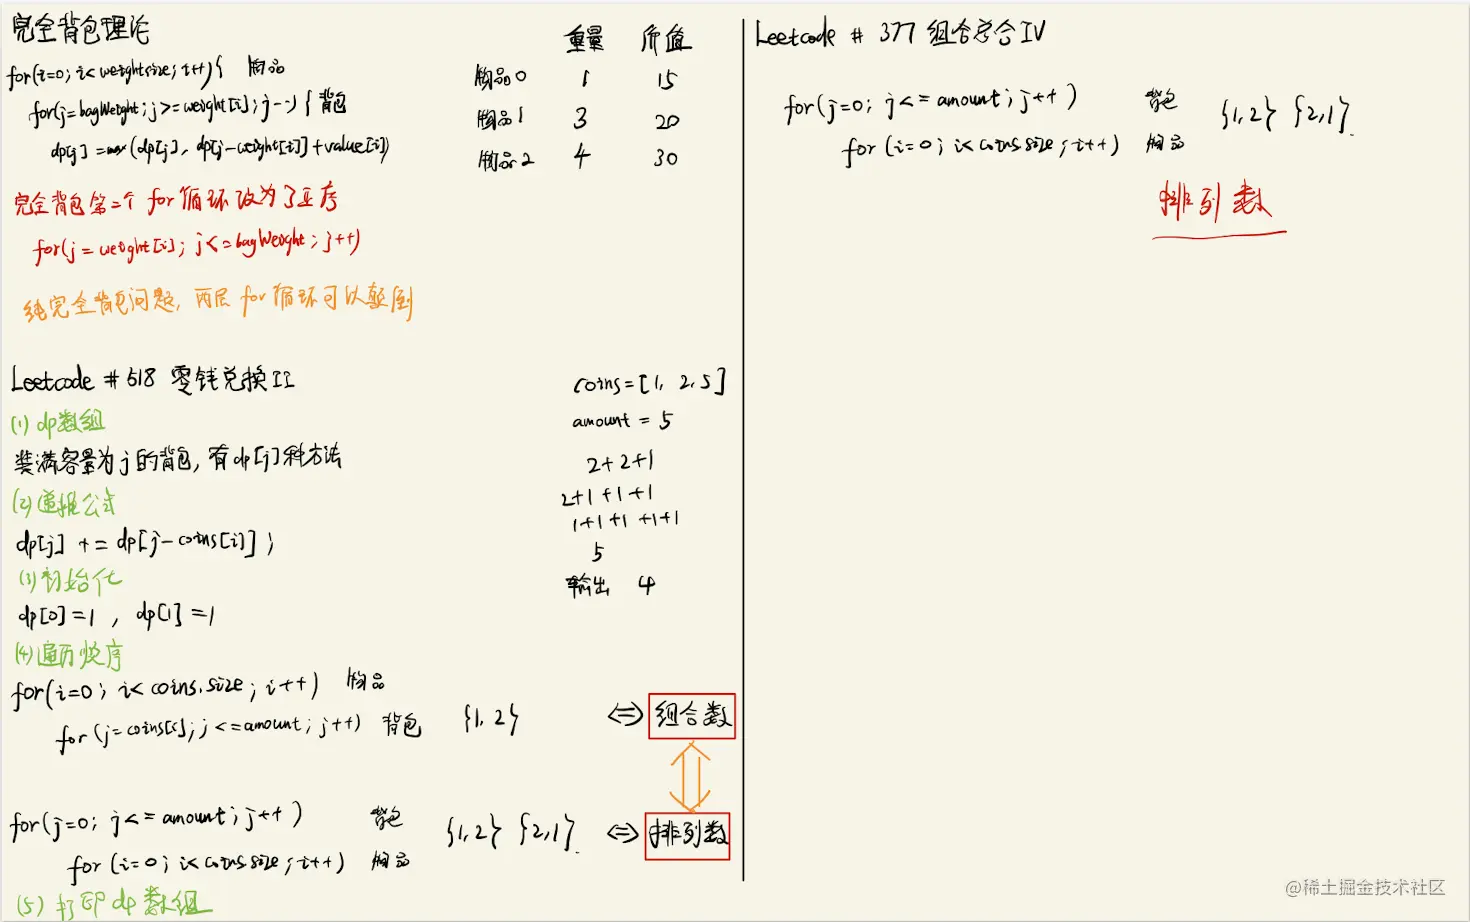 完全背包理论
for(i=0; i<weight.size; i++){ 物品
for(j=bagWeight; j>=weight[i]; j--){ 背包
dp[j] = max(dp[j], dp[j-weight[i]]+value[i])
重量 价值
物品0 1 15
物品1 3 20
物品2 4 30
完全背包第二个for循环改为了正序
for(j=weight[i]; j<=bagWeight; j++)
纯完全背包问题, 两层for循环可以颠倒
Leetcode #518 零钱兑换II
(1) dp数组
装满容量为j的背包, 有dp[j]种方法
(2) 递推公式
dp[j] += dp[j-coins[i]];
(3) 初始化
dp[0]=1, dp[1]=1
(4) 遍历顺序
for(i=0; i<coins.size; i++) 物品
for(j=coins[i]; j<=amount; j++) 背包 {1,2} ⇔ 组合数
for(j=0; j<=amount; j++) 背包
for(i=0; i<coins.size; i++) 物品 {1,2} {2,1}. ⇔ 排列数
(5) 打印dp数组
coins=[1, 2, 5]
amount = 5
2+2+1
2+1+1+1
1+1+1+1+1
5
输出 4
Leetcode # 377 组合总合IV
for(j=0; j<=amount; j++) 背包 {1,2} {2,1}.
for(i=0; i<coins.size; i++) 物品
排列数
@稀土掘金技术社区